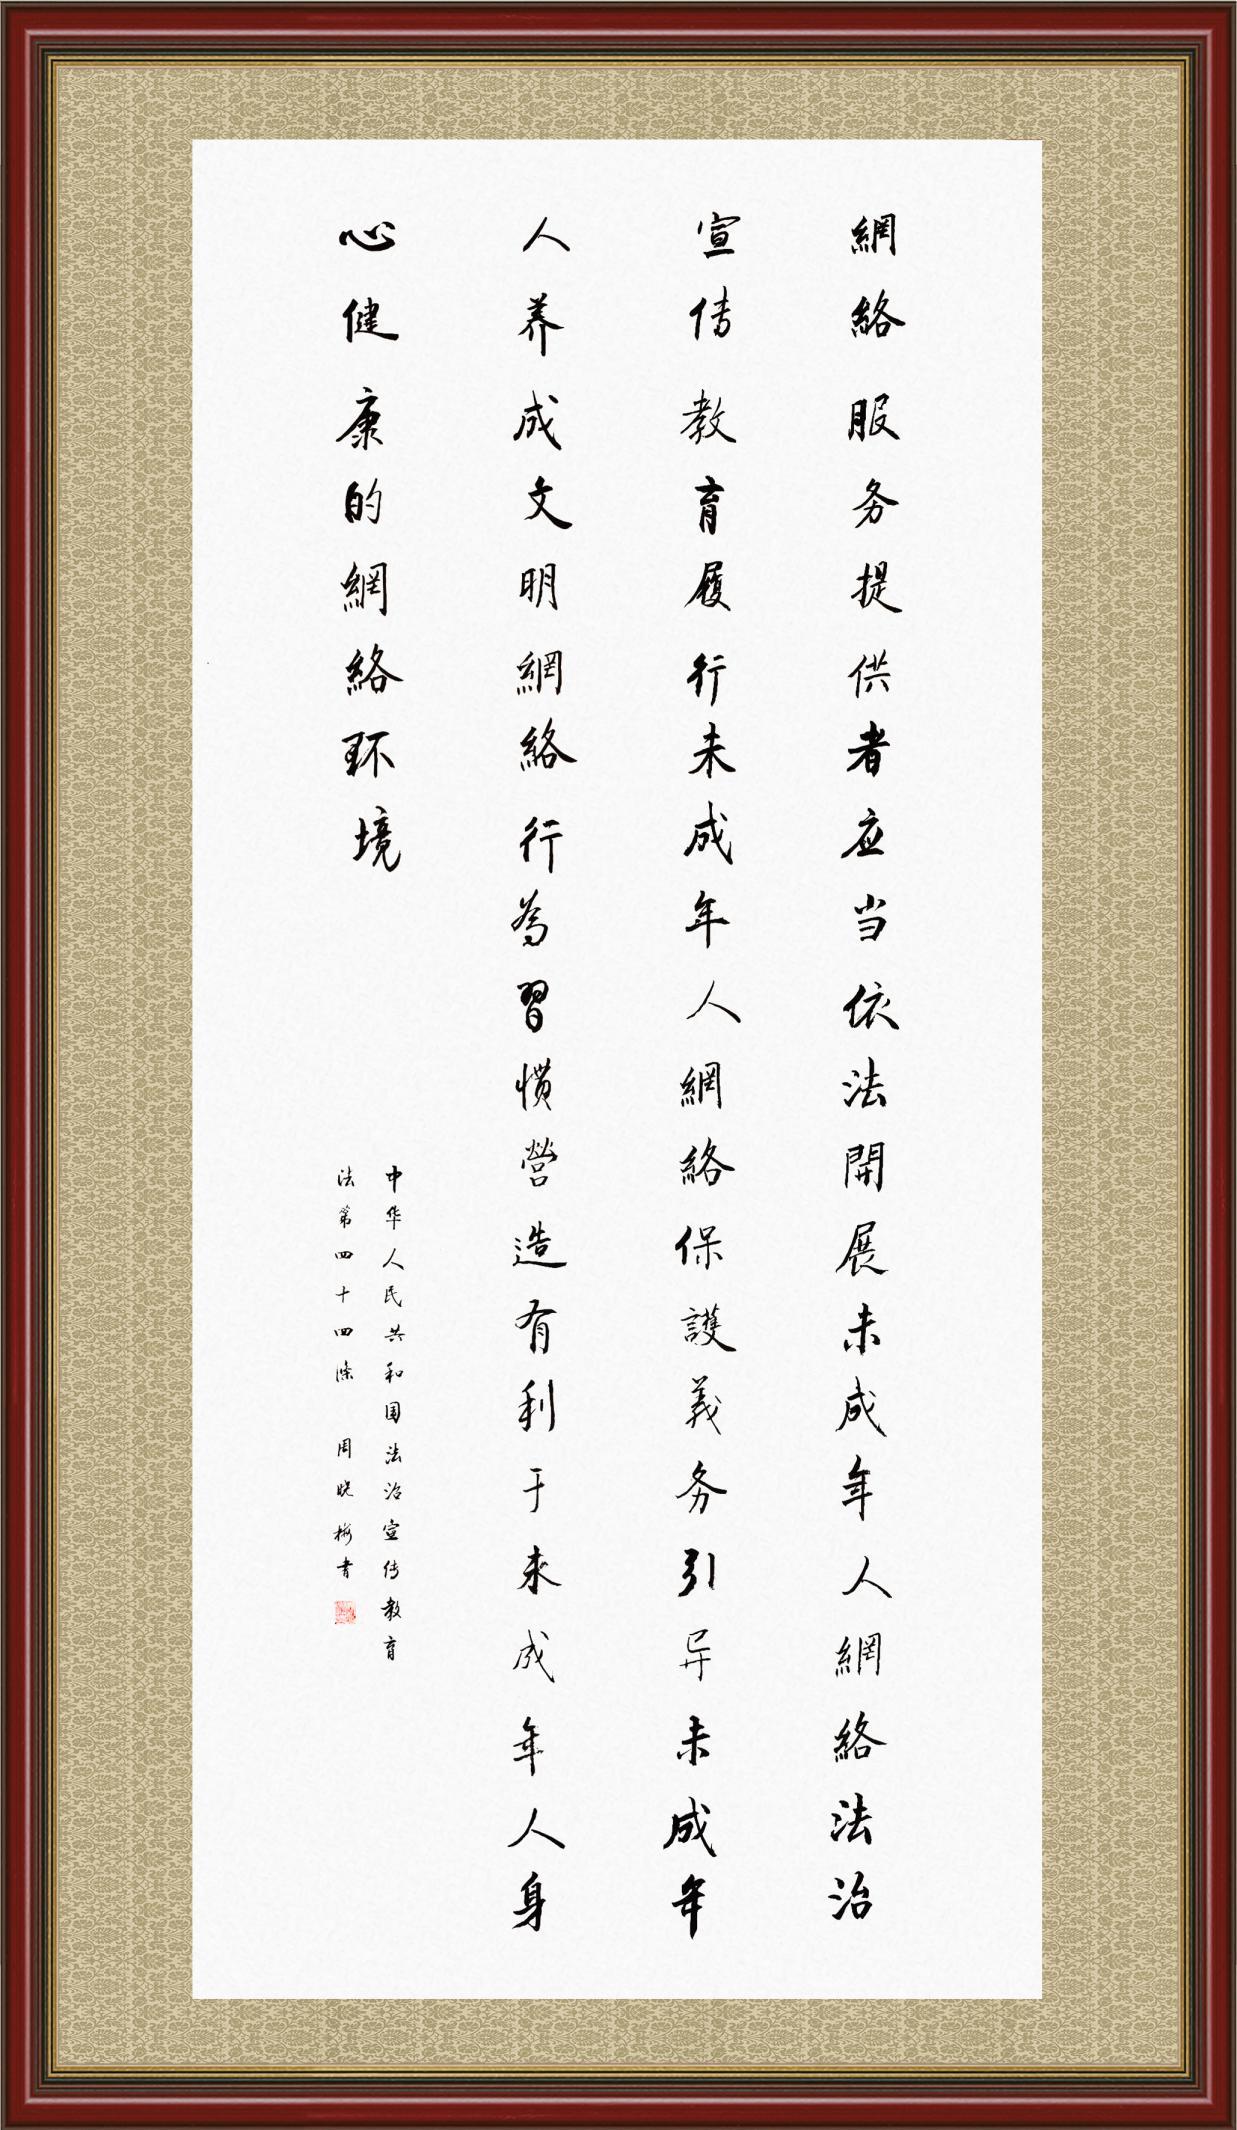 網絡服务提供者应当依法開展未成年人網絡法治
宣传教育履行未成年人網絡保護義务引导未成年
人养成文明網絡行為習惯營造有利于未成年人身
心健康的網絡环境
中华人民共和国法治宣传教育
法第四十四條 周晓梅书